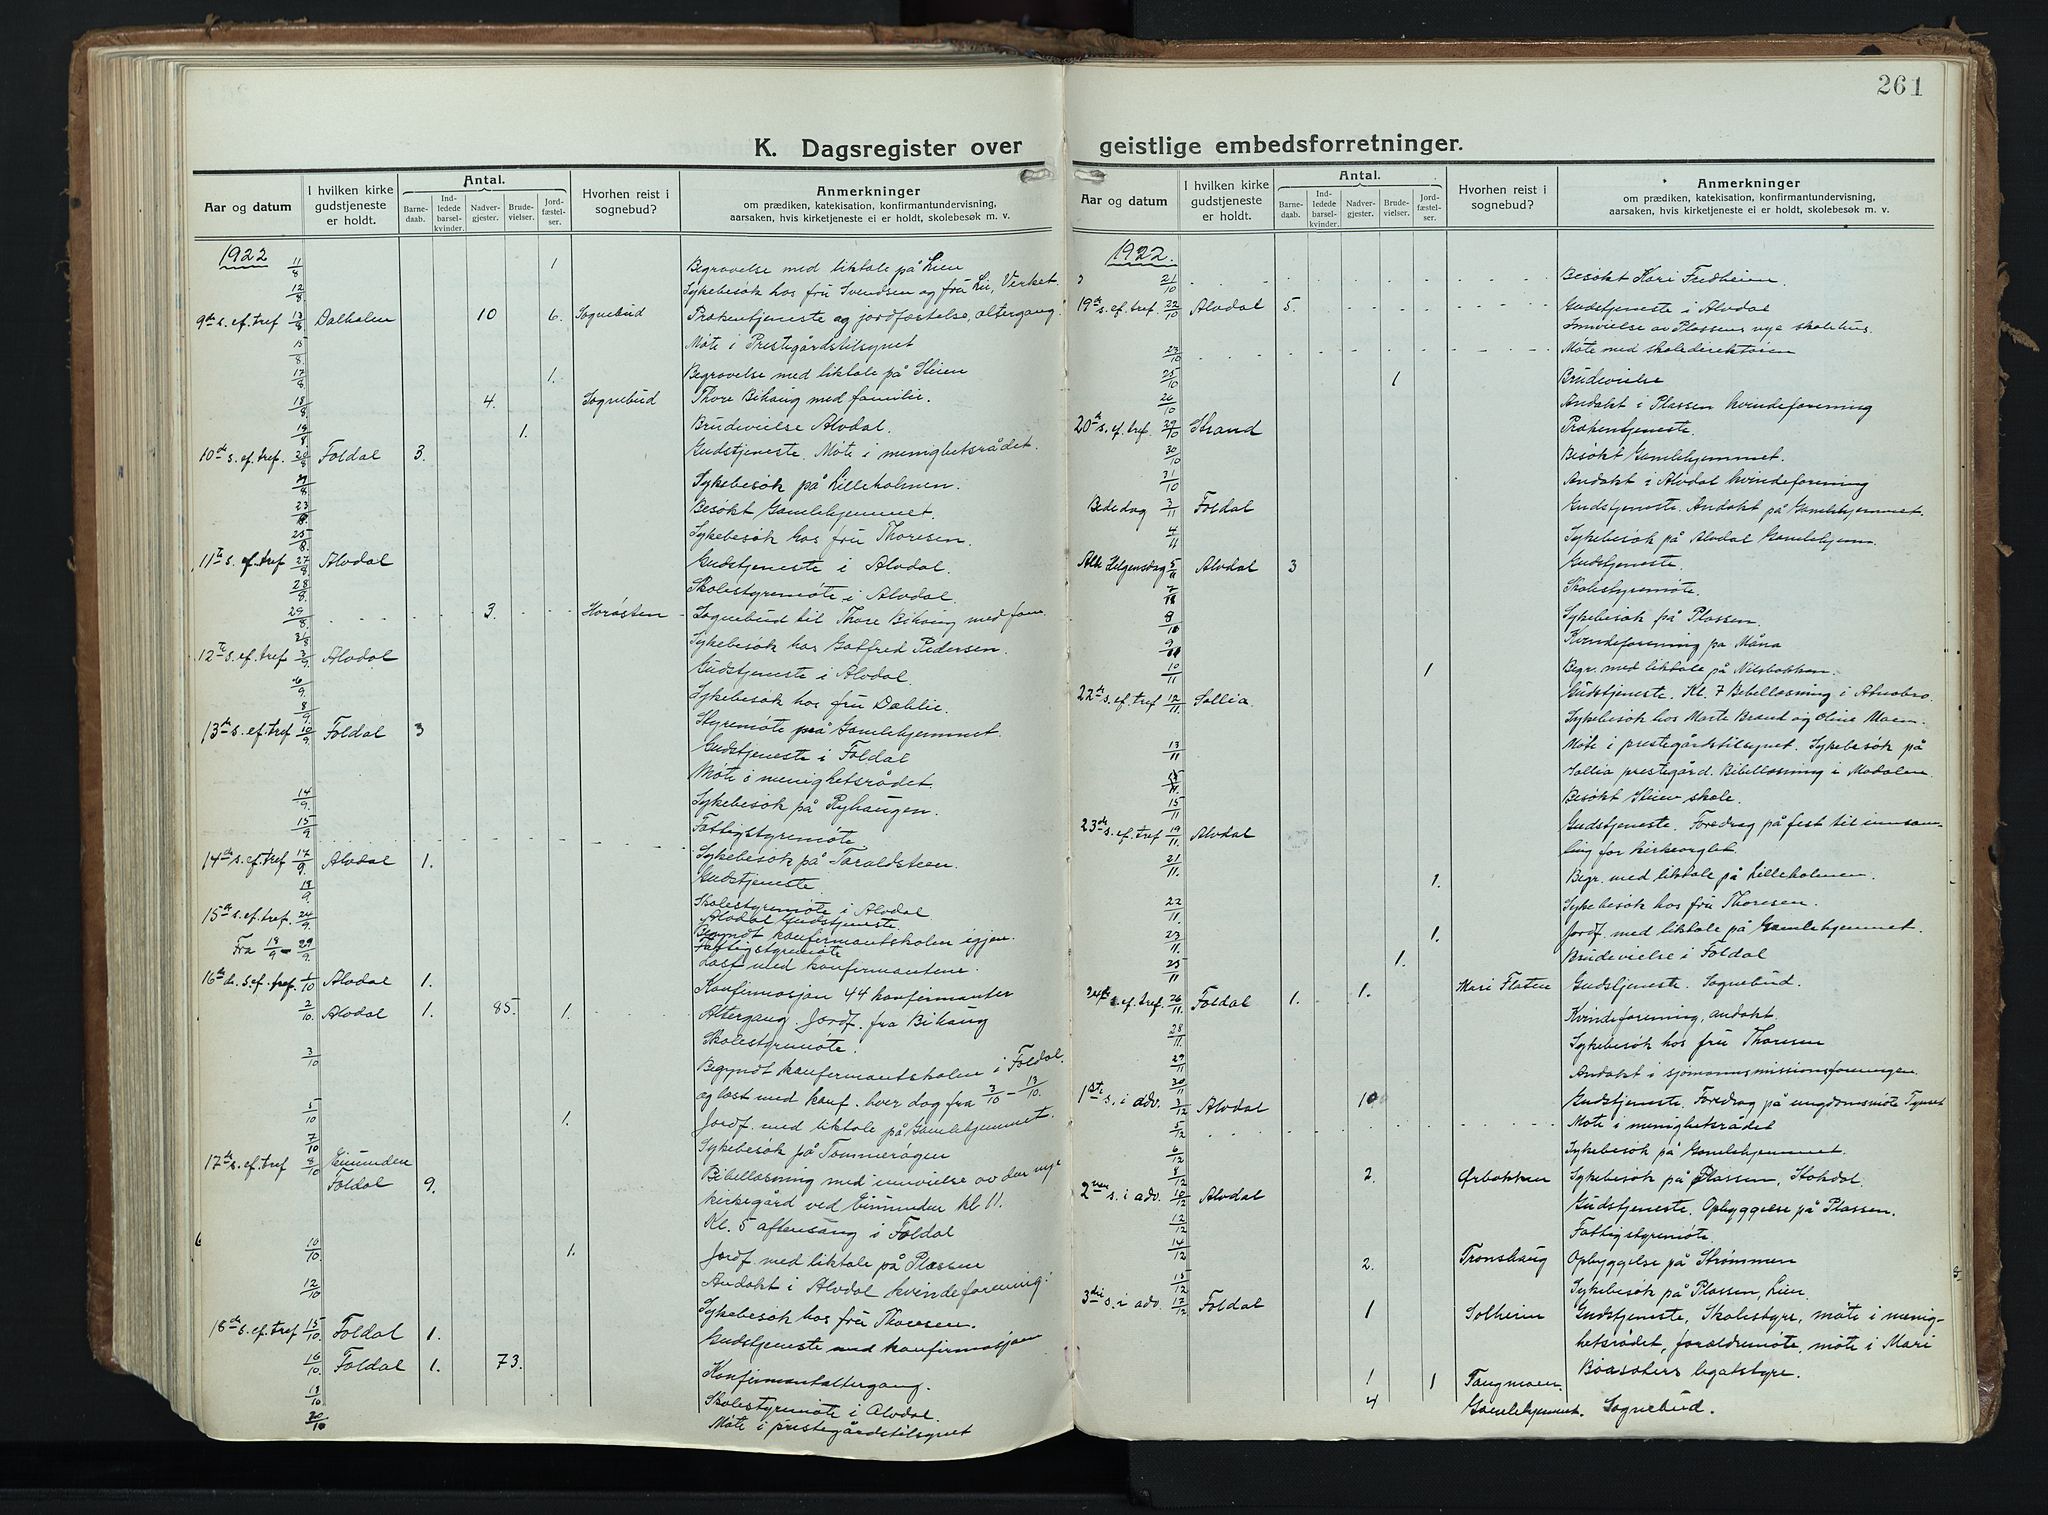 261
K. Dagsregister over geistlige embedsforretninger.
Aar og datum
I hvilken kirke gudstjeneste er holdt.
Antal.
Barnedaab.
Indledede barselkvinder.
Nadvergjester.
Brudevielser.
Jordfæstelser.
Hvorhen reist i sognebud?
Anmerkninger
om prædiken, katekisation, konfirmantundervisning,
aarsaken, hvis kirketjeneste ei er holdt, skolebesøk m. v.
1922 11/8 1 Begravelse med liktale på Lien
12/8 Sykebesøk hos fru Svendsen og fru Lie, Verket.
9de s. ef. tref 13/8 Dalholen 10 6. Sognebud Prekentjeneste og jordfæstelse, altergang.
15/8 Møte i Prestegårdstilsynet
17/8 1. Begravelse med liktale på Steien
18/8 4. Sognebud Thore Bihaug med familie.
19/8 1. Brudevielse Alvdal.
10de s. ef. tref. 20/8 Foldal 3. Gudstjeneste. Møte i menighetsrådet.
21/8 Sykebesøk på Lilleholmen.
23/8. Besøkt Gamlehjemmet.
25/8. Sykebesøk hos fru Thoresen.
11te s. ef. tref 27/8 Alvdal Gudstjeneste i Alvdal.
28/8. Skolestyremøte i Alvdal.
29/8. 3. Sognebud til Thore Bihaug med fam.
Sykebesøk hos Gotfred Pedersen.
12te s. ef. tref 3/9. Alvdal Gudstjeneste i Alvdal.
6/9. Sykebesøk hos fru Dæhlie.
8/9. Styremøte på Gamlehjemmet.
13de s. ef. tref 10/9. Foldal 3 Gudstjeneste i Foldal
Møte i menighetsrådet.
14/9. Sykebesøk på Ryhaugen.
15/9 Fattigstyremøte
Sykebesøk på Taraldsteen.
14de s. ef. tref 17/9. Alvdal 1. Gudstjeneste.
18/9. Skolestyremøte i Alvdal
15de s. ef. tref. 24/9. Alvdal Gudstjeneste.
Begyndt konfirmantskolen igjen.
Fattigstyremøte
Fra 18/9 - 29/9. Læst med konfirmantene.
16de s. ef. tref. 1/10 Alvdal 1. Konfirmasjon 44 konfirmanter
2/10. Alvdal 1. 85. 1. Altergang Jordf. fra Bihaug
Skolestyremøte.
3/10 Begyndt konfirmantskolen i Foldal.
og læst med konf. hver dag fra 3/10 - 13/10.
5/10 1. Jordf. med liktale på Gamlehjemmet.
7/10 Sykebesøk på
17de s. ef. tref 8/10 Einunden Foldal 9. Bibellæsning med innvielse av den nye
kirkegård ved Einunden kl 11.
Kl. 5 aftensang i Foldal
10/10 1. Jordf. med liktale på Plassen
12/10 Andakt i Alvdal kvindeforening.
Sykebesøk hos fru Thoresen.
18de s. ef. tref 15/10. Foldal 1. Gudstjeneste med konfirmasjon
16/10 Foldal 1. 73. Konfirmantaltergang.
18/10 Skolestyremøte i Alvdal.
20/10 Møte i prestegårdstilsynet
K. Dagsregister over geistlige embedsforretninger.
Aar og datum
I hvilken kirke gudstjeneste er holdt.
Antal.
Barnedaab.
Indledede barselkvinder.
Nadvergjester.
Brudevielser.
Jordfæstelser.
Hvorhen reist i sognebud?
Anmerkninger
om prædiken, katekisation, konfirmantundervisning,
aarsaken, hvis kirketjeneste ei er holdt, skolebesøk m. v.
1922. 21/10 Besøkt Kari Fredheim
19de s. ef. tref. 22/10 Alvdal 5. Gudstjeneste i Alvdal
Innvielse av Plassens nye skolehus.
23/10 Møte med skoledirektøren
25/10 1 Brudevielse
26/10 Andakt i Plassen kvindeforening
20de s. ef. tref. 29/10 Strand Prekentjeneste.
30/10 Besøkt Gamlehjemmet.
31/10 Andakt i Alvdal kvindeforening
Bededag 3/11 Foldal Gudstjeneste. Andakt på Gamlehjemmet.
4/11 Sykebesøk på Alvdal Gamlehjem.
Alle Helgensdag 5/11 Alvdal 3 Gudstjeneste.
7/11 Skolestyremøte.
8/11 Sykebesøk på Plassen.
9/11 Kvindeforening på Måna
10/11 1 Begr. med liktale på Nilsbakken.
22de s. ef. tref 12/11. Sollia Gudstjeneste. Kl. 7 Bibellæsning i Atnabro.
Sykebesøk hos Marte Brænd og Oline Moen.
13/11 Møte i prestegårdstilsynet. Sykebesøk på
Sollia prestegård. Bibellæsning i Modalen.
15/11 Besøkt Steien skole.
23de s. ef. tref 19/11. Alvdal Gudstjeneste. Foredrag på fest til innsam-
ling for kirkeorglet.
21/11. 1. Begr. med liktale på Lilleholmen.
22/11. Sykebesøk hos fru Thoresen.
23/11. 1. Jordf. med liktale på Gamlehjemmet.
25/11 1. Brudevielse i Foldal
s. ef. tref. 26/11. Foldal 1. 1. Mari Flaten Gudstjeneste. Sognebud.
Kvindeforening, andakt.
28/11. Sykebesøk hos fru Thoresen
29/11 Andakt i sjømannsmissionsforeningen.
30/11
1ste s. i adv. 3/12 Alvdal 10 Gudstjeneste. Foredrag på ungdomsmøte Tynset
5/12 Møte i menighetsrådet
6/12 Sykebesøk på Gamlehjemmet.
8/12 2. Ørbakken Sykebesøk på Plassen, Stokdal
2nen s. i adv. 10/12 Alvdal Gudstjeneste. Opbyggelse på Plassen.
12/12 Fattigstyremøte.
14/12 2. Tronshaug Opbyggelse på Strømmen
15/12 Sykebesøk på Plassen, Lien.
3die s. i adv. 17/12 Foldal 1 Solheim Gudstjeneste, Skolestyre, møte i menig-
hetsrådet, foreldremøte, møte i Mari
1 1 Tangmoen. legatstyre.
4 Gamlehjemmet. Sognebud.